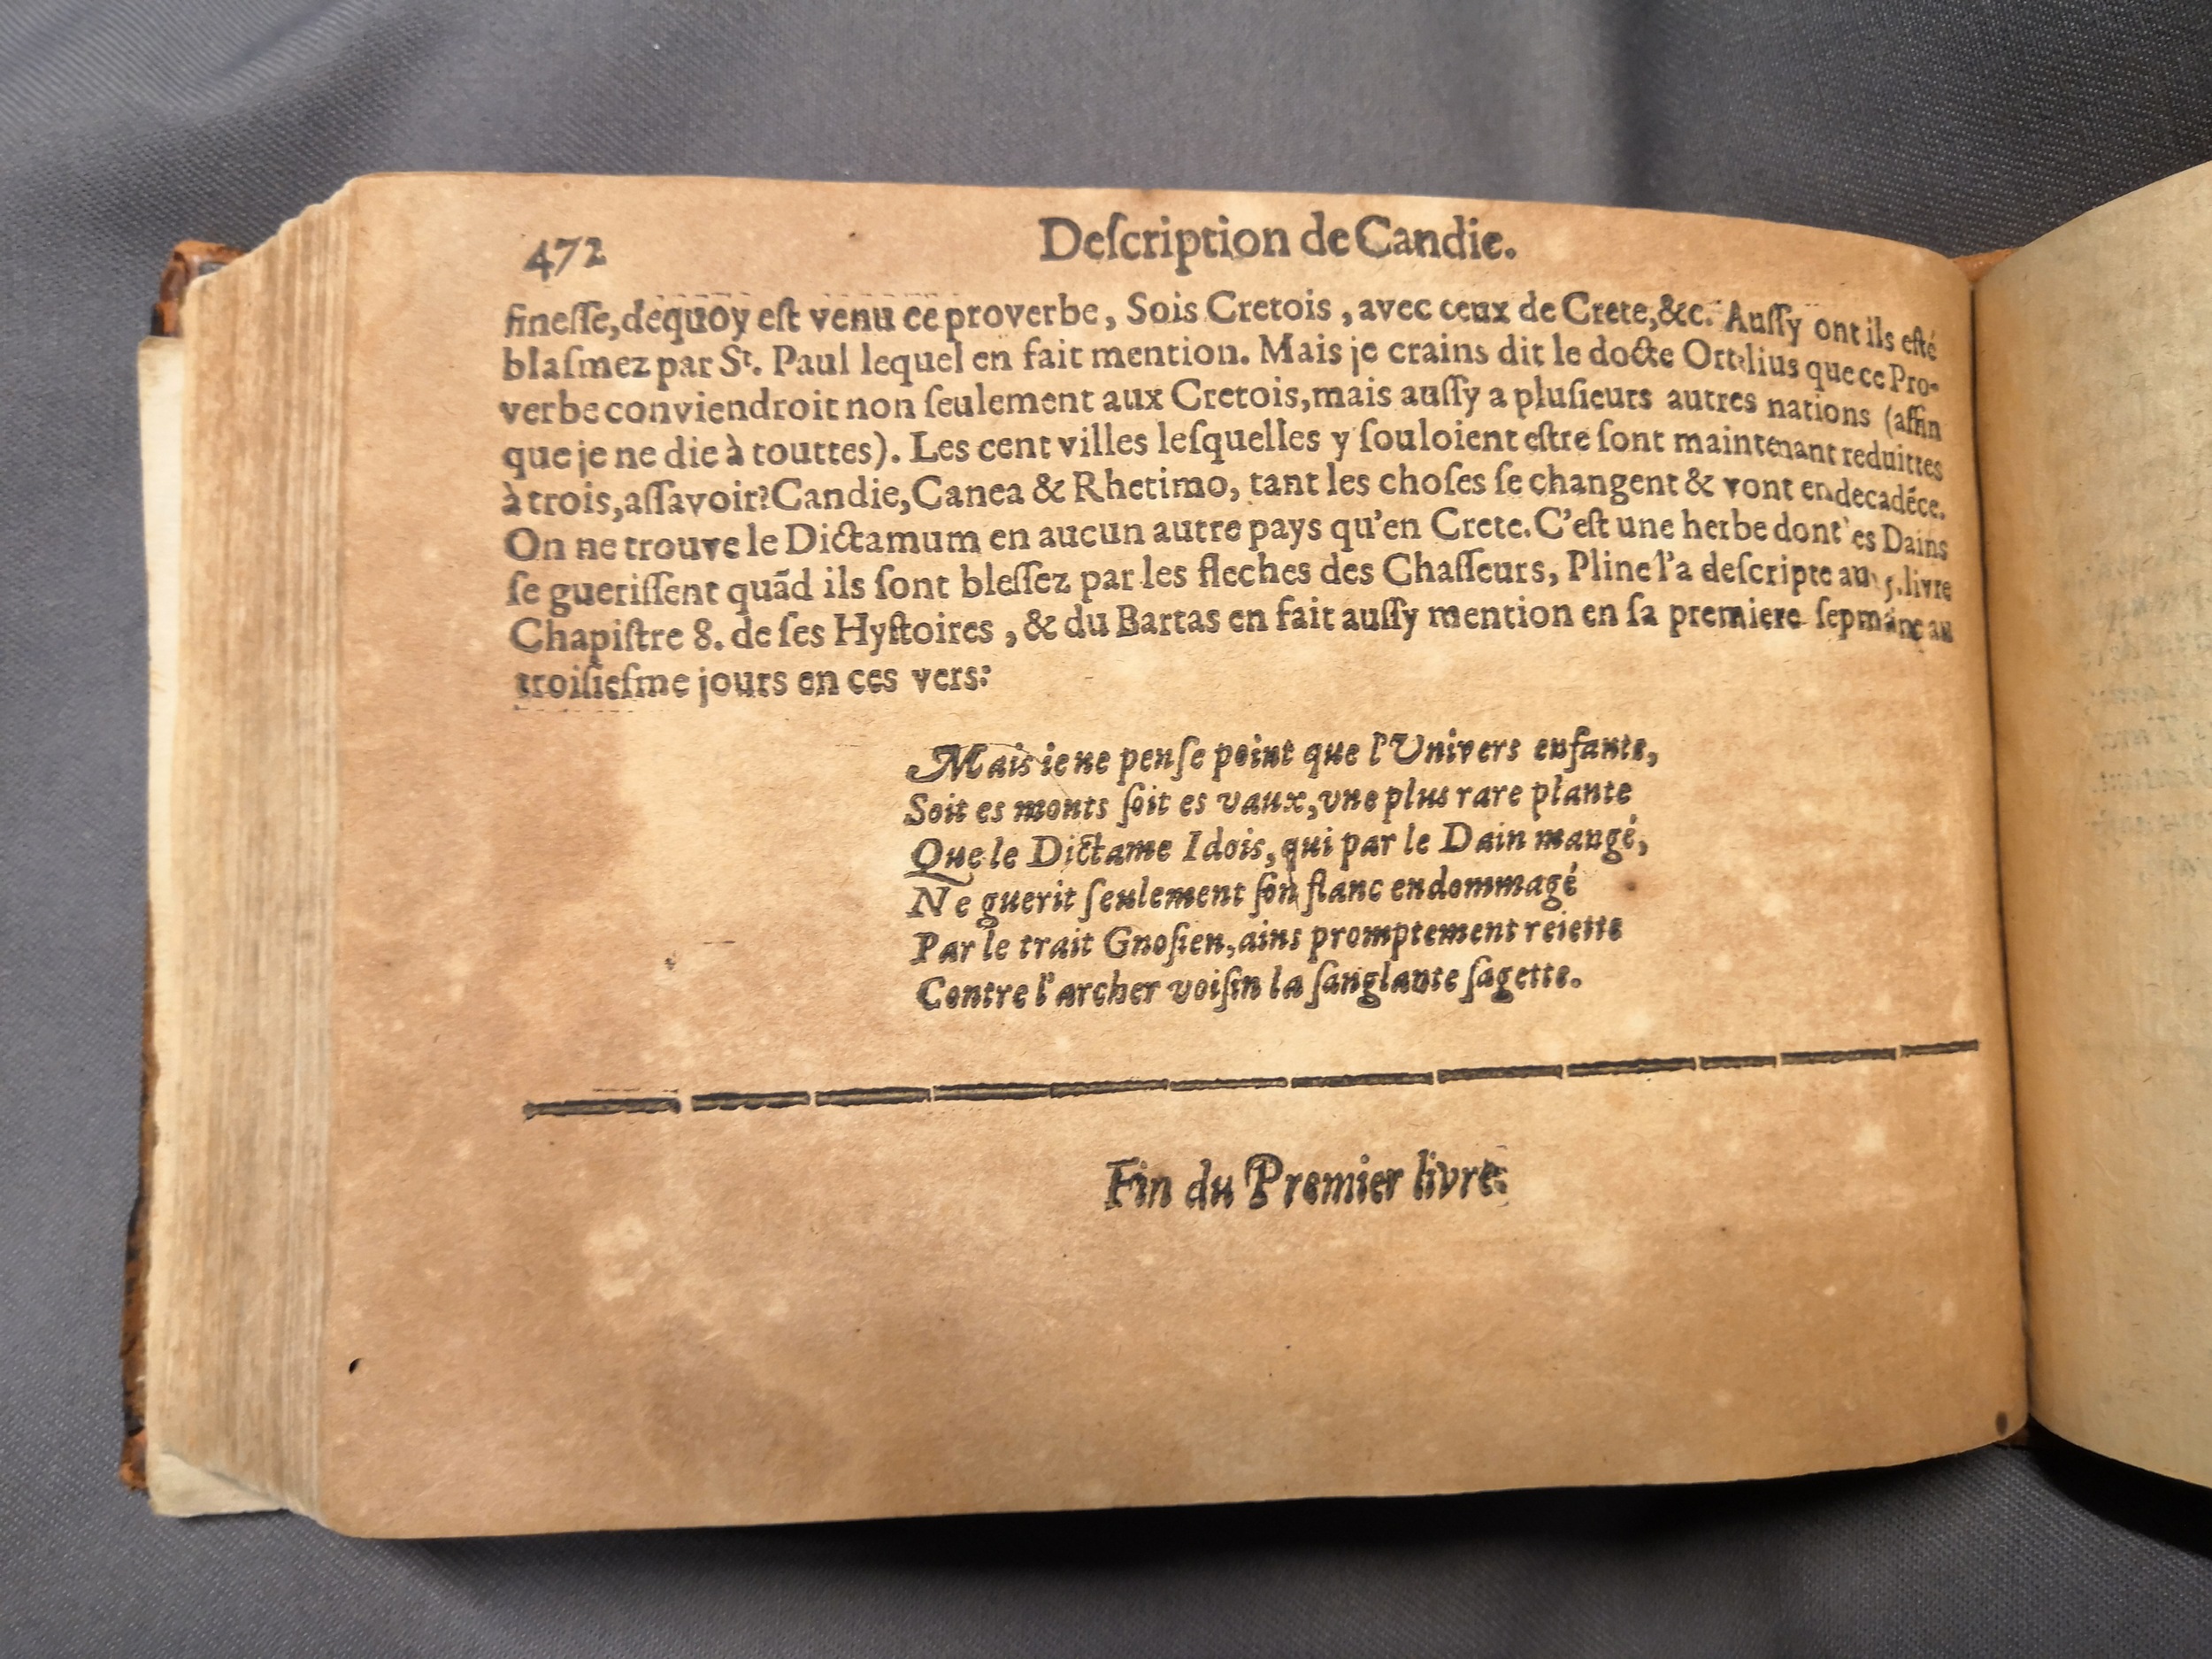 472
Deſcription de Candie.
fineſſe, dequoy eſt venu ce proverbe, Sois Cretois, avec ceux de Crete, &c. Auſſy ont ils eſté
blaſmez par St. Paul lequel en fait mention. Mais je crains dit le docte Ortelius que ce Pro-
verbe conviendroit non ſeulement aux Cretois, mais auſſy a pluſieurs autres nations (affin
que je ne die à touttes). Les cent villes leſquelles y ſouloient eſtre ſont maintenant reduittes
à trois, aſſavoir: Candie, Canea & Rhetimo, tant les choſes ſe changent & vont en decadẽce.
On ne trouve le Dictamum en aucun autre pays qu'en Crete. C'eſt une herbe dont es Dains
ſe gueriſſent quãd ils ſont bleſſez par les fleches des Chaſſeurs, Pline l'a deſcripte au livre
Chapiſtre 8. de ſes Hyſtoires, & du Bartas en fait auſſy mention en ſa premiere ſepmaine au
troiſieſme jours en ces vers:
Mais ie ne penſe point que l'Univers enfante,
Soit es monts ſoit es vaux, vne plus rare plante
Que le Dictame Idois, qui par le Dain mangé,
Ne guerit ſeulement ſon flanc endommagé
Par le trait Gnoſien, ains promptement reiette
Contre l'archer voiſin la ſanglante ſagette.
Fin du Premier livre.